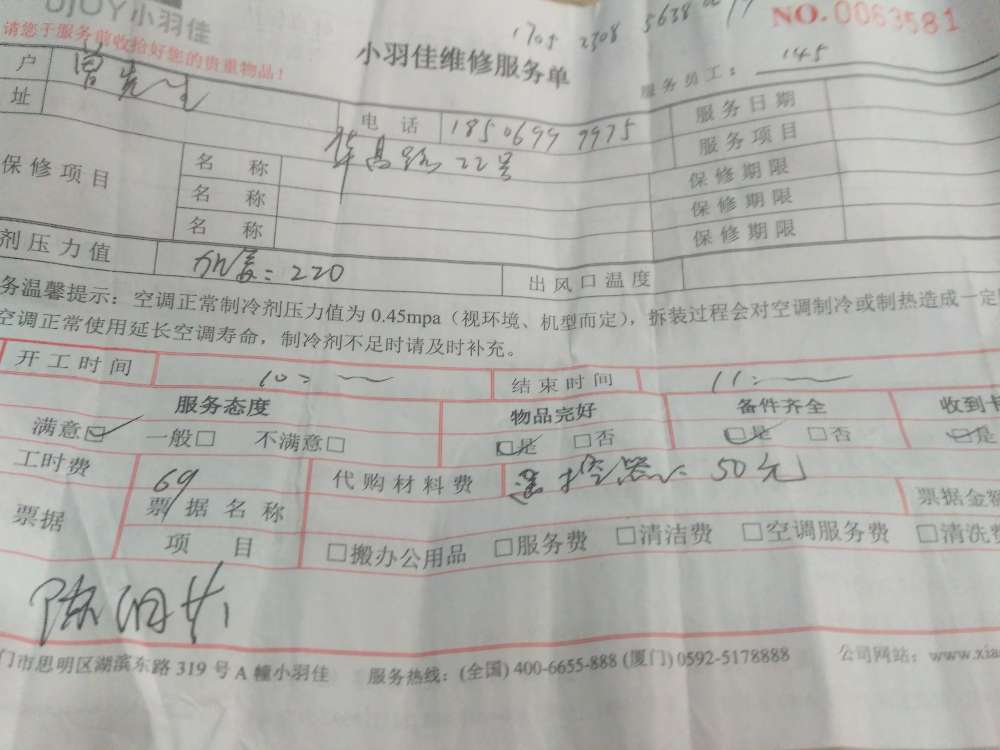 UJOY小羽佳
请您于服务前收拾好您的贵重物品！
小羽佳维修服务单
1705 2308 5638
NO.0063581
服务员工： 145
户 曾先生
电 话 18506999975
服务日期
址 华昌路22号
服务项目
保修项目
名 称 保修期限
名 称 保修期限
名 称 保修期限
剂压力值 加氟：220 出风口温度
务温馨提示：空调正常制冷剂压力值为 0.45mpa（视环境、机型而定），拆装过程会对空调制冷或制热造成一定
空调正常使用延长空调寿命，制冷剂不足时请及时补充。
开工时间 10： 结束时间 11：
服务态度 物品完好 备件齐全 收到卡
满意☑ 一般□ 不满意□ ☑是 □否 ☑是 □否 ☑是
工时费 69 代购材料费 遥控器： 50元
票据 票据名称 票据金额
项 目 □搬办公用品 □服务费 □清洁费 □空调服务费 □清洗费
门市思明区湖滨东路 319 号 A 幢小羽佳 服务热线：(全国) 400-6655-888 (厦门) 0592-5178888 公司网站：www.xia